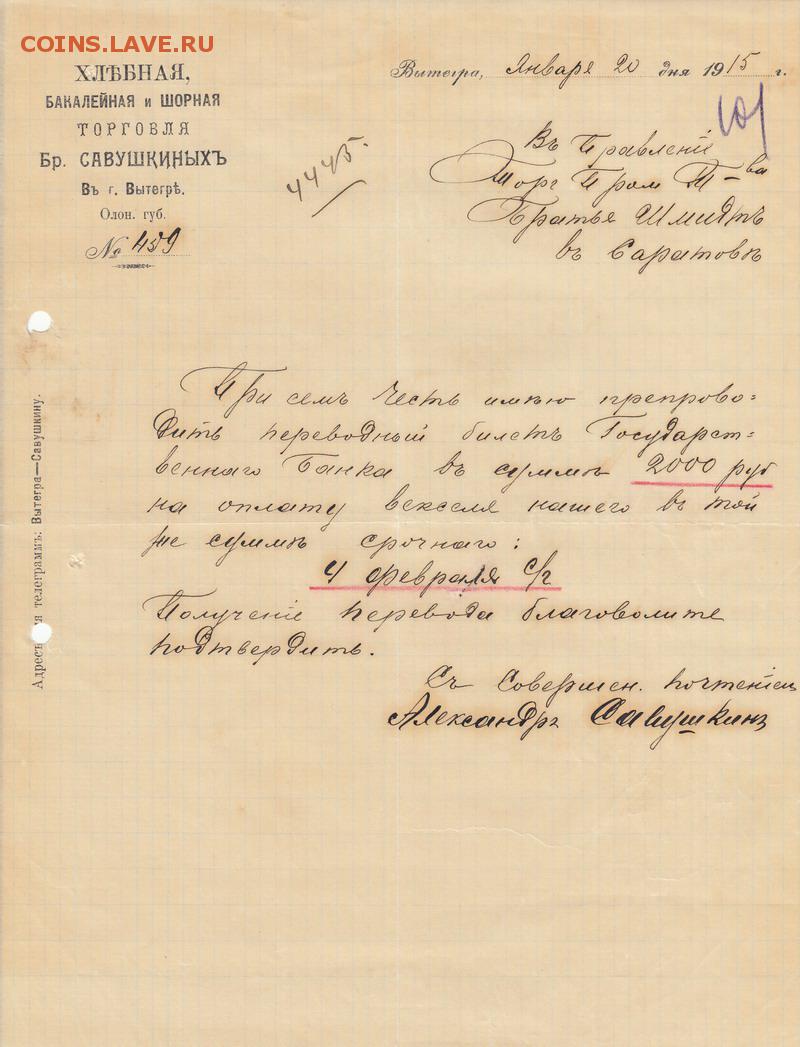 COINS.LAVE.RU
ХЛѢБНАЯ,
БАКАЛЕЙНАЯ и ШОРНАЯ
ТОРГОВЛЯ
Бр. САВУШКИНЫХЪ
Въ г. Вытегрѣ.
Олон. губ.
№ 459
Вытегра, Января 20 дня 1915 г.
4445.
Въ Правленіе
Торг Пром Т-ва
Братья Шмидтъ
въ Саратовѣ
При семъ честь имѣю препрово=
дить переводный билетъ Государст=
веннаго Банка въ суммѣ 2000 руб
на оплату векселя нашего въ той
же суммѣ срочнаго:
4 февраля с/г
Полученіе перевода благоволите
подтвердить.
Съ Совершен. почтеніем
Александръ Савушкинъ
Адресъ для телеграммъ: Вытегра—Савушкину.